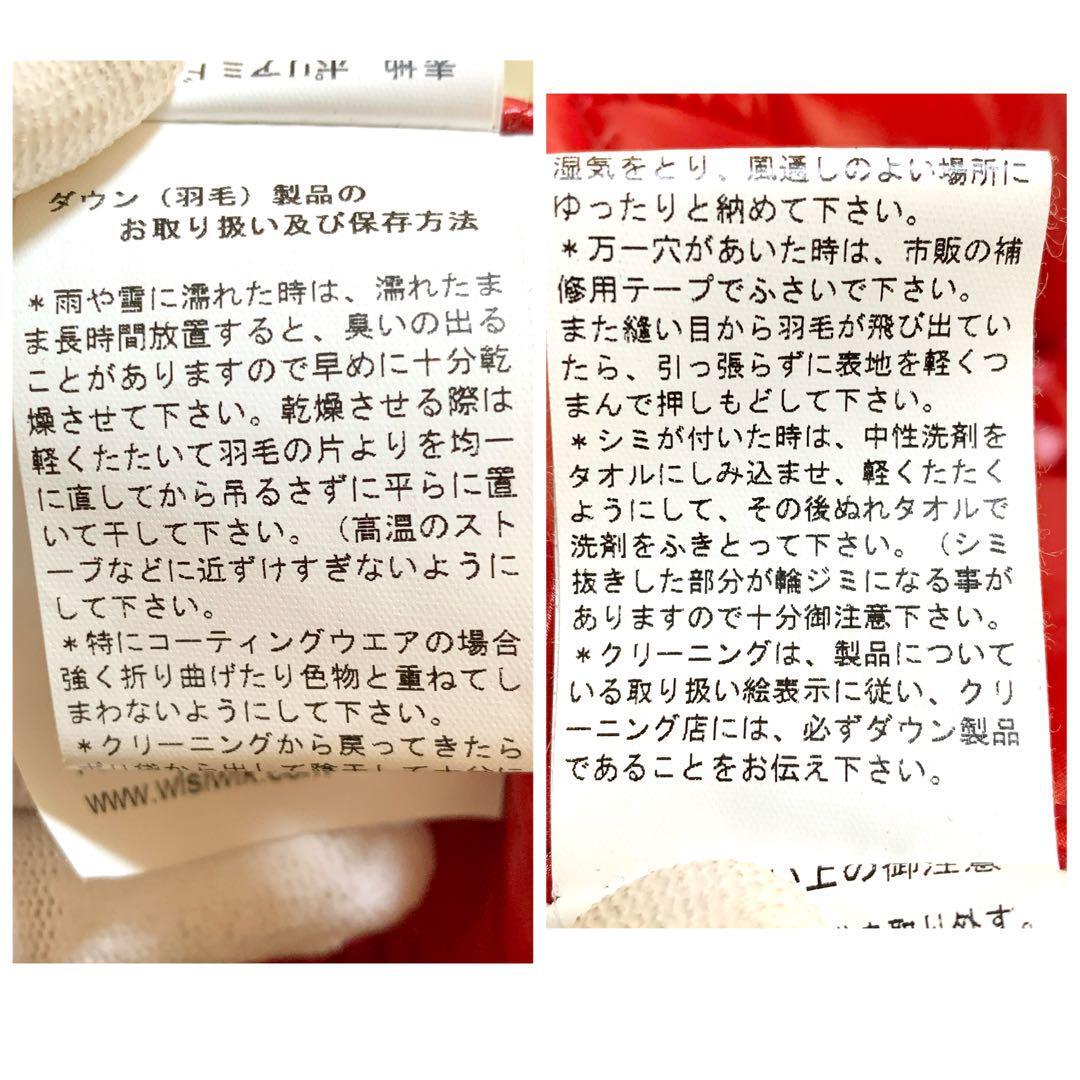 表地 ポリアミド
ダウン（羽毛）製品の
お取り扱い及び保存方法
＊雨や雪に濡れた時は、濡れたま
ま長時間放置すると、臭いの出る
ことがありますので早めに十分乾
燥させて下さい。乾燥させる際は
軽くたたいて羽毛の片よりを均一
に直してから吊るさずに平らに置
いて干して下さい。（高温のスト
ーブなどに近ずけすぎないように
して下さい。
＊特にコーティングウエアの場合
強く折り曲げたり色物と重ねてし
まわないようにして下さい。
＊クリーニングから戻ってきたら
ポリ袋から出して陰干しして十分に
湿気をとり、風通しのよい場所に
ゆったりと納めて下さい。
＊万一穴があいた時は、市販の補
修用テープでふさいで下さい。
また縫い目から羽毛が飛び出てい
たら、引っ張らずに表地を軽くつ
まんで押しもどして下さい。
＊シミが付いた時は、中性洗剤を
タオルにしみ込ませ、軽くたたく
ようにして、その後ぬれタオルで
洗剤をふきとって下さい。（シミ
抜きした部分が輪ジミになる事が
ありますので十分御注意下さい。
＊クリーニングは、製品について
いる取り扱い絵表示に従い、クリ
ーニング店には、必ずダウン製品
であることをお伝え下さい。
い上の御注意
を取り外す。